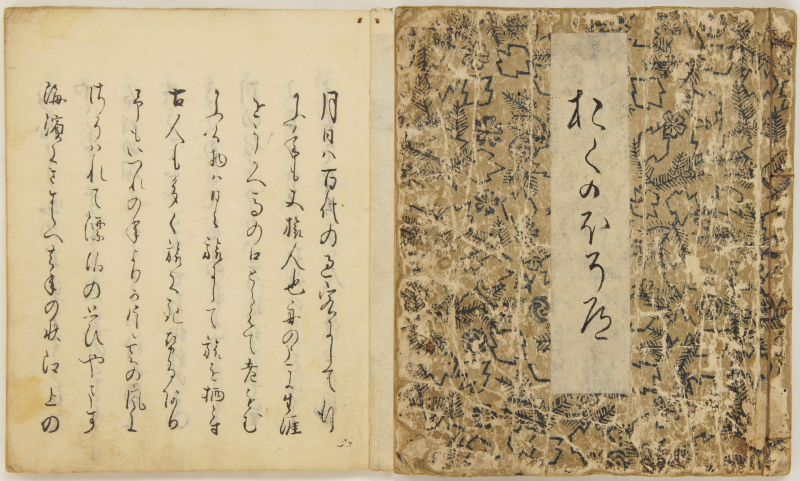 おくのほそ道
月日は百代の過客にして行
かふ年も又旅人也舟の上に生涯
をうかへ馬の口とらえて老をむ
かふる物は日々旅にして旅を栖とす
古人も多く旅に死せるあり
予もいつれの年よりか片雲の風に
さそはれて漂泊の思ひやます
海浜にさすらへ去年の秋江上の